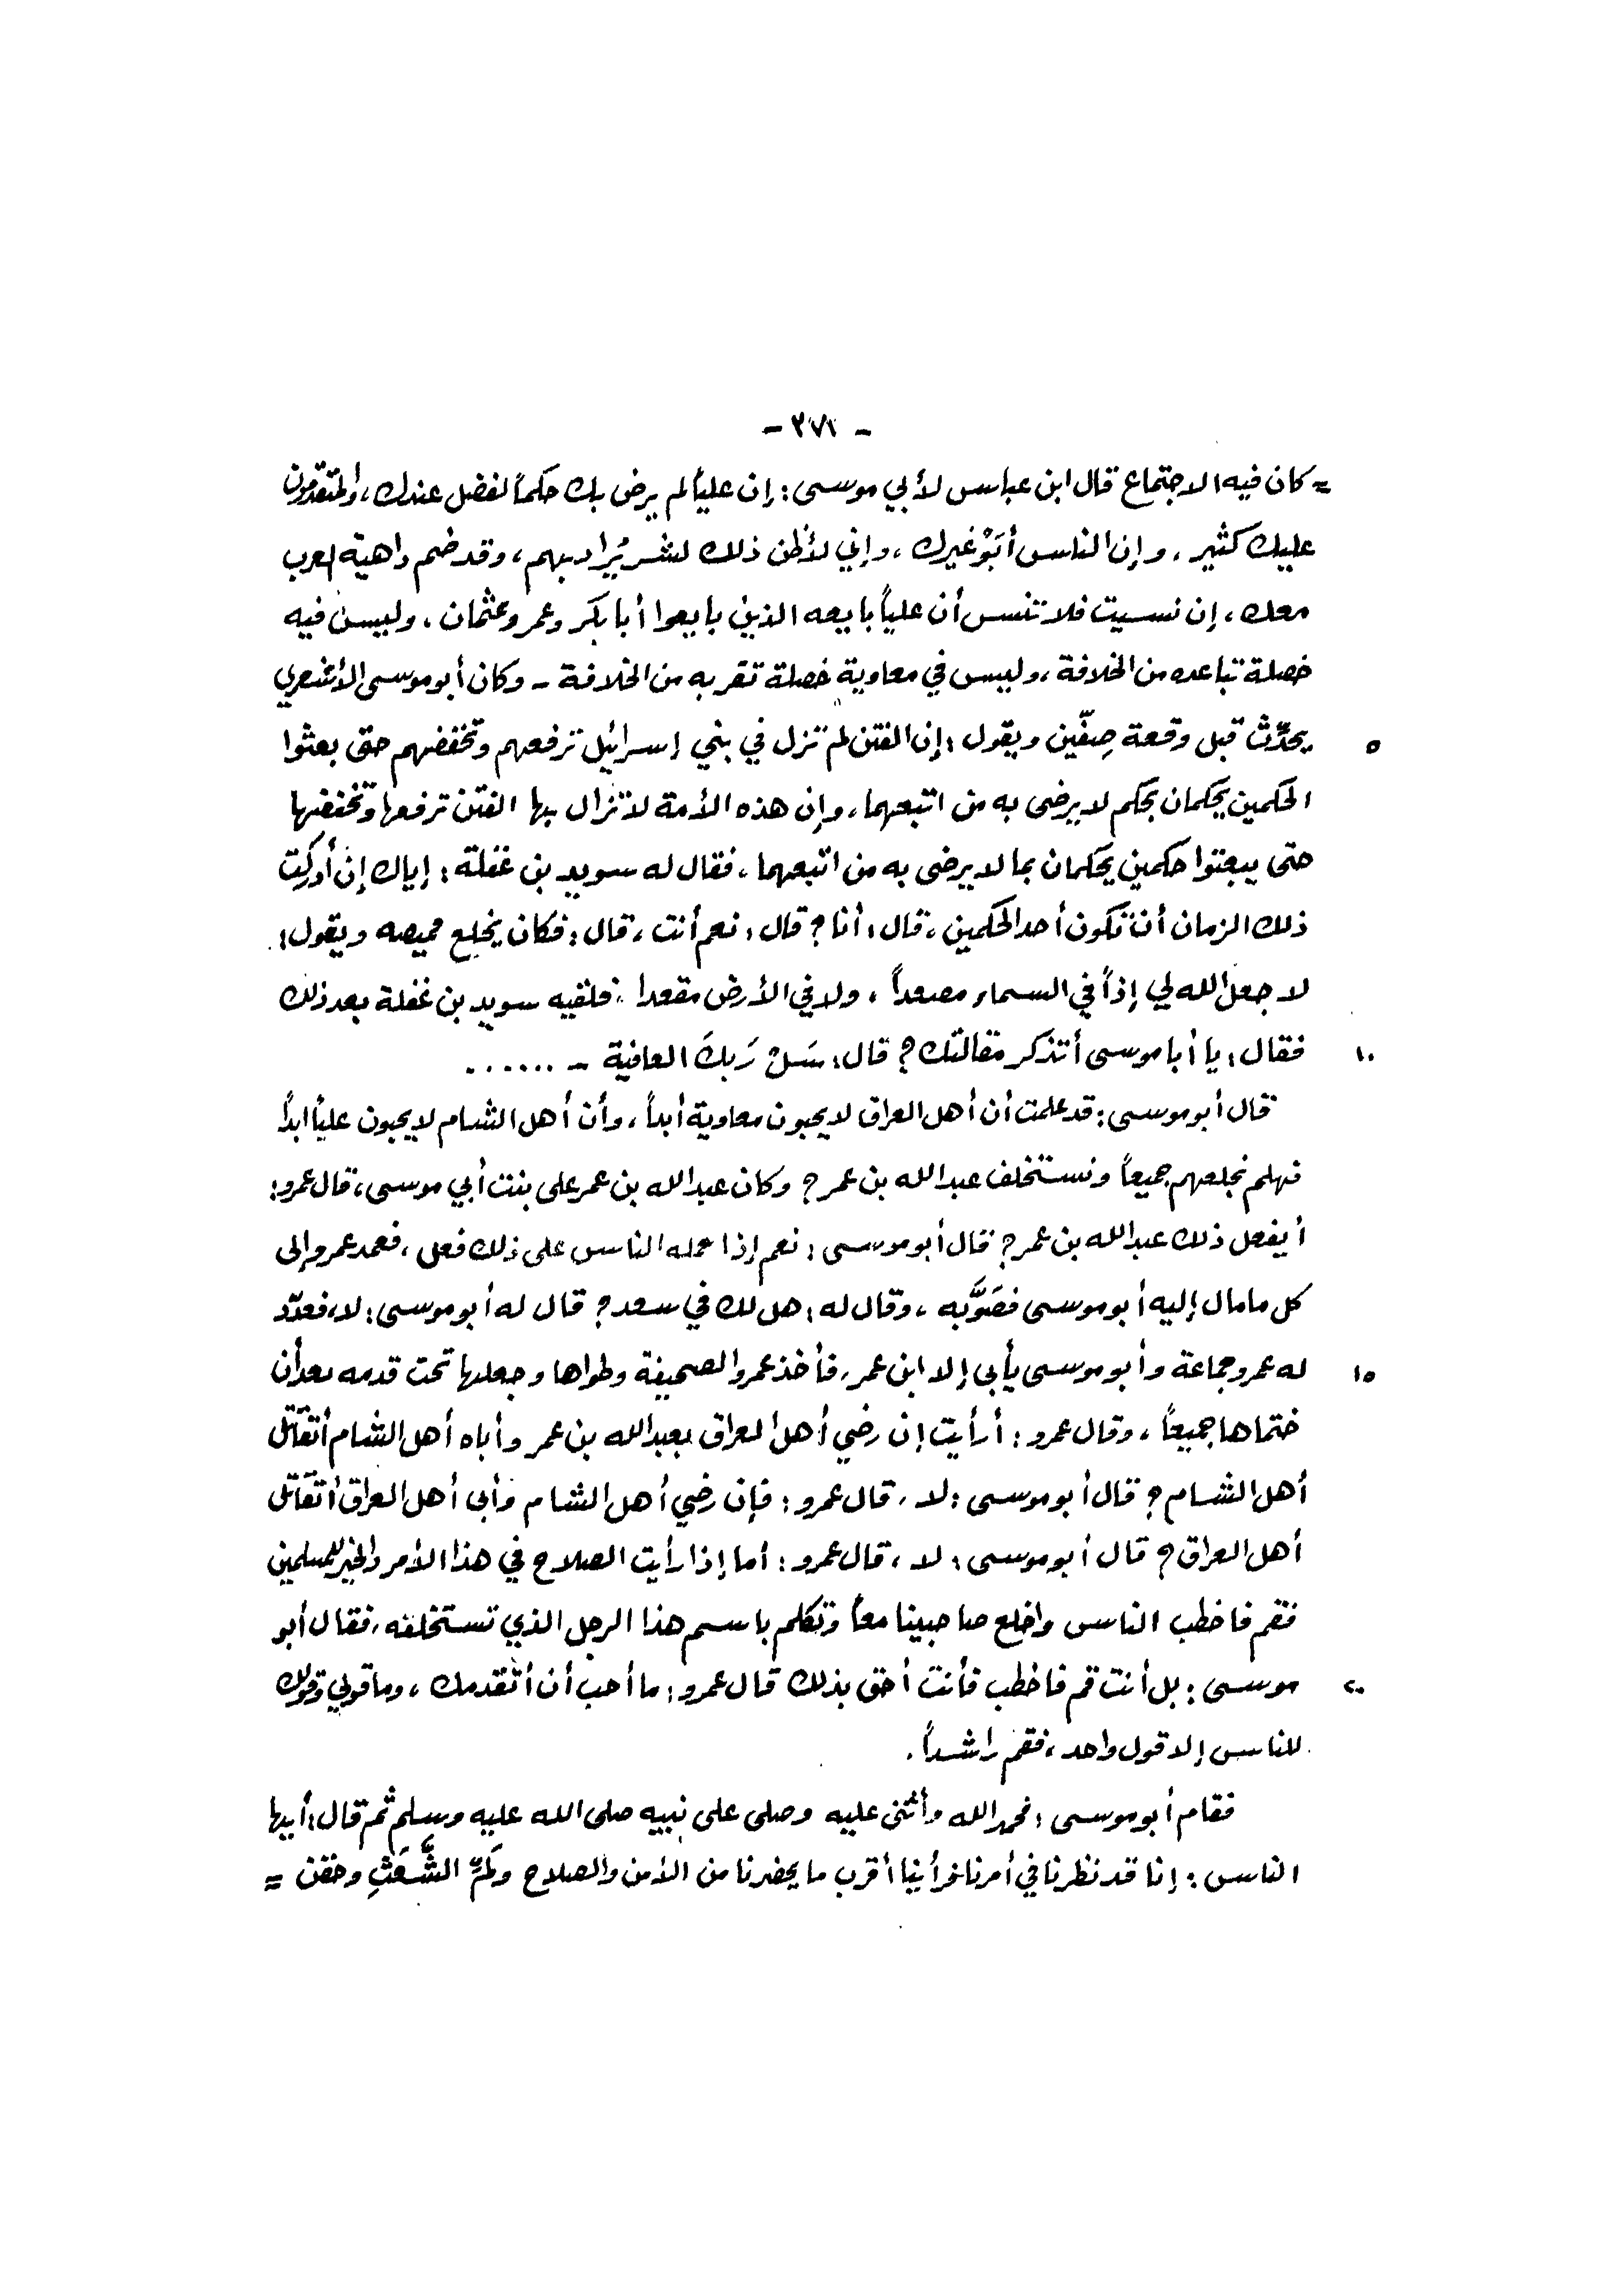 - ٣٧١ -
= كان فيه الاجتماع قال ابن عباس لأبي موسى: إن علياً لم يرض بك حكماً لفضل عندك، والمتقدمون
عليك كثير، وإن الناس أبَوْ غيرك، وإني لأظن ذلك لشر يُراد بهم، وقد ضم داهية العرب
معك، إن نسيت فلا تنس أن علياً بايعه الذين بايعوا أبا بكر وعمر وعثمان، وليس فيه
خصلة تباعده من الخلافة، وليس في معاوية خصلة تقربه من الخلافة - وكان أبو موسى الأشعري
٥ يحدِّث قبل وقعة صِفّين ويقول: إن الفتن لم تزل في بني إسرائيل ترفعهم وتخفضهم حتى بعثوا
الحكمين يحكمان بحكم لا يرضى به من اتبعهما، وإن هذه الأمة لا تزال بها الفتن ترفعها وتخفضها
حتى يبعثوا حكمين يحكمان بما لا يرضى به من اتبعهما، فقال له سويد بن غفلة: إياك إن أدركت
ذلك الزمان أن تكون أحد الحكمين، قال: أنا؟ قال: نعم أنت، قال: فكان يخلع قميصه ويقول:
لا جعل الله لي إذاً في السماء مصعداً، ولا في الأرض مقعدا، فلقيه سويد بن غفلة بعد ذلك
١٠ فقال: يا أبا موسى أتذكر مقالتك؟ قال: سَلْ رَبكَ العافية - ......
قال أبو موسى: قد علمت أن أهل العراق لا يحبون معاوية أبداً، وأن أهل الشام لا يحبون علياً ابداً
فهلم نخلعهم جميعاً ونستخلف عبد الله بن عمر؟ وكان عبد الله بن عمر على بنت أبي موسى، قال عمرو:
أيفعل ذلك عبد الله بن عمر؟ قال أبو موسى: نعم إذا حمله الناس على ذلك فعل، فعمد عمرو إلى
كل ما مال إليه أبو موسى فصَوَّبه، وقال له: هل لك في سعد؟ قال له أبو موسى: لا، فعدّد
١٥ له عمرو جماعة وأبو موسى يأبى إلا ابن عمر، فأخذ عمرو الصحيفة وطواها وجعلها تحت قدمه بعد أن
ختماها جميعاً، وقال عمرو: أرأيت إن رضي أهل العراق بعبد الله بن عمر وأباه أهل الشام أتقاتل
أهل الشام؟ قال أبو موسى: لا، قال عمرو: فإن رضي أهل الشام وأبى أهل العراق أتقاتل
أهل العراق؟ قال أبو موسى: لا، قال عمرو: أما إذا رأيت الصلاح في هذا الأمر والخير للمسلمين
فقم فاخطب الناس واخلع صاحبينا معاً وتكلم باسم هذا الرجل الذي تستخلفه، فقال أبو
٢٠ موسى: بل أنت قم فاخطب فأنت أحق بذلك قال عمرو: ما أحب أن أتقدمك، وما قولي وقولك
للناس إلا قول واحد، فقم راشداً.
فقام أبو موسى: فحمد الله وأثنى عليه وصلى على نبيه صلى الله عليه وسلم ثم قال: أيها
الناس: إنا قد نظرنا في أمرنا فرأينا أقرب ما يحضرنا من الأمن والصلاح ولَمِّ الشَّعَثِ وحقن =